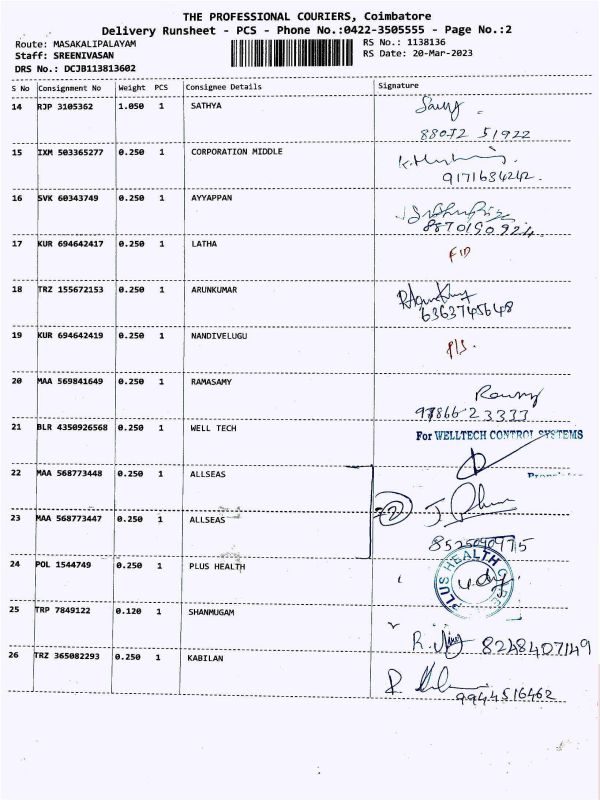 THE PROFESSIONAL COURIERS, Coimbatore
Delivery Runsheet - PCS - Phone No.:0422-3505555 - Page No.:2
Route: MASAKALIPALAYAM RS No.: 1138136
Staff: SREENIVASAN RS Date: 20-Mar-2023
DRS No.: DCJB113813602
S No Consignment No Weight PCS Consignee Details Signature
14 RJP 3105362 1.050 1 SATHYA
88072 51922
15 IXM 503365277 0.250 1 CORPORATION MIDDLE
9171684242.
16 SVK 60343749 0.250 1 AYYAPPAN
8870190924.
17 KUR 694642417 0.250 1 LATHA
18 TRZ 155672153 0.250 1 ARUNKUMAR
6363745648
19 KUR 694642419 0.250 1 NANDIVELUGU
20 MAA 569841649 0.250 1 RAMASAMY
21 BLR 4350926568 0.250 1 WELL TECH
For WELLTECH CONTROL SYSTEMS
22 MAA 568773448 0.250 1 ALLSEAS
23 MAA 568773447 0.250 1 ALLSEAS
2
24 POL 1544749 0.250 1 PLUS HEALTH
PLUS HEALTH
25 TRP 7849122 0.120 1 SHANMUGAM
8248407149
26 TRZ 365082293 0.250 1 KABILAN
9944516462